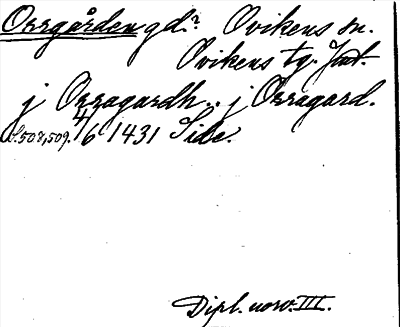 Orrgården gd.? Ovikens sn.
Ovikens tg. Jmt.
j Orragardh.. j Orragard.
s.508,509. 4/6 1431 Side.
Dipl. norv. III.